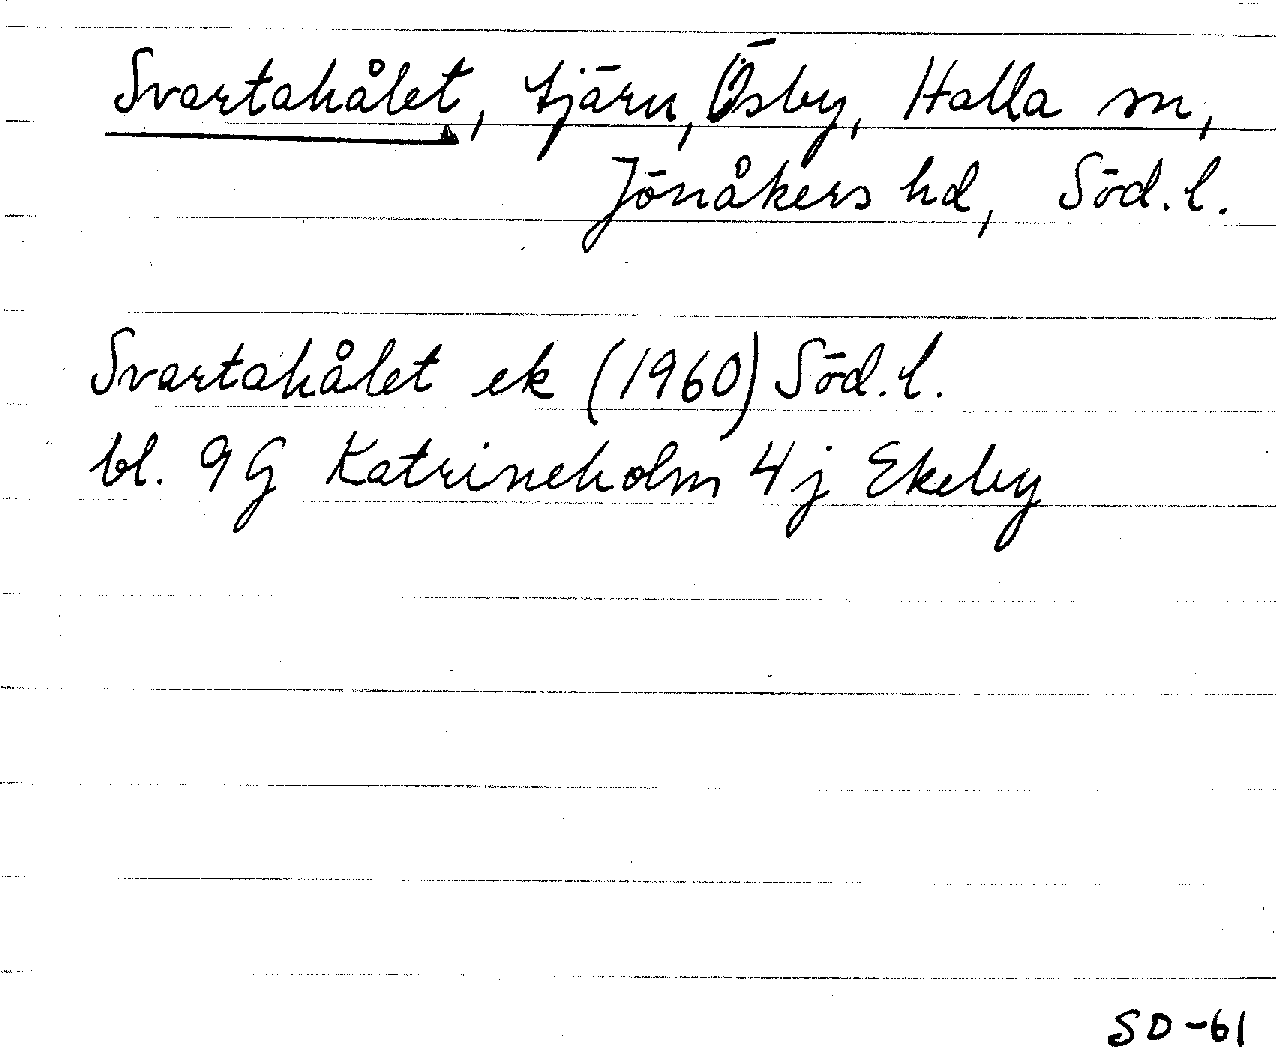 Svartahålet, tjärn, Ösby, Halla sn,
Jönåkers hd, Söd. l.
Svartahålet ek (1960) Söd. l.
bl. 9G Katrineholm 4j Ekeby
SD-61